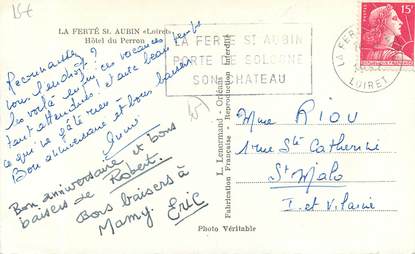 15f
LA FERTÉ St. AUBIN (Loiret)
Hôtel du Perron
Reconnaissez
vous l'endroit?
les voilà enfin, ces vacances
tant attendues! et avec beau temps
ce qui ne gâte rien
Bon anniversaire et bons baisers
Bon anniversaire et bons
baisers de Robert.
Bons baisers à
Mamy. Eric
LA FERTE ST AUBIN
PORTE DE SOLOGNE
SON CHATEAU
L. Lenormand - Orléans
Fabrication Française - Reproduction Interdite
LA FERTE ST
LOIRET
15F
Mme RIOU
1 rue Ste Catherine
St Malo
I. et Vilaine
Photo Véritable